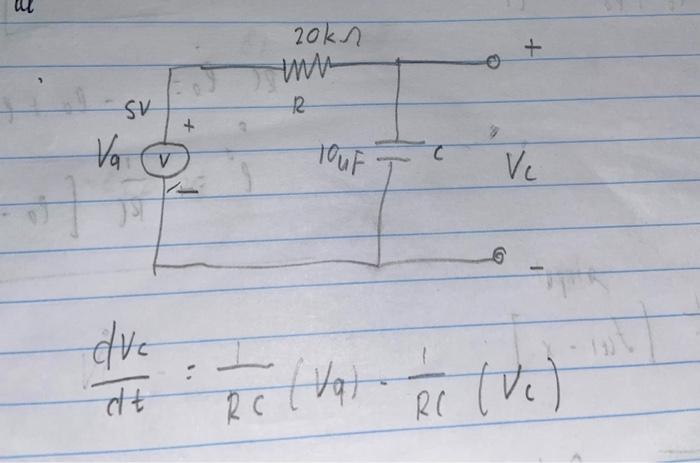 20kΩ
+
R
5V
+
Va
V
10uF
C
Vc
-
-
dVc/dt = 1/RC (Va) - 1/RC (Vc)